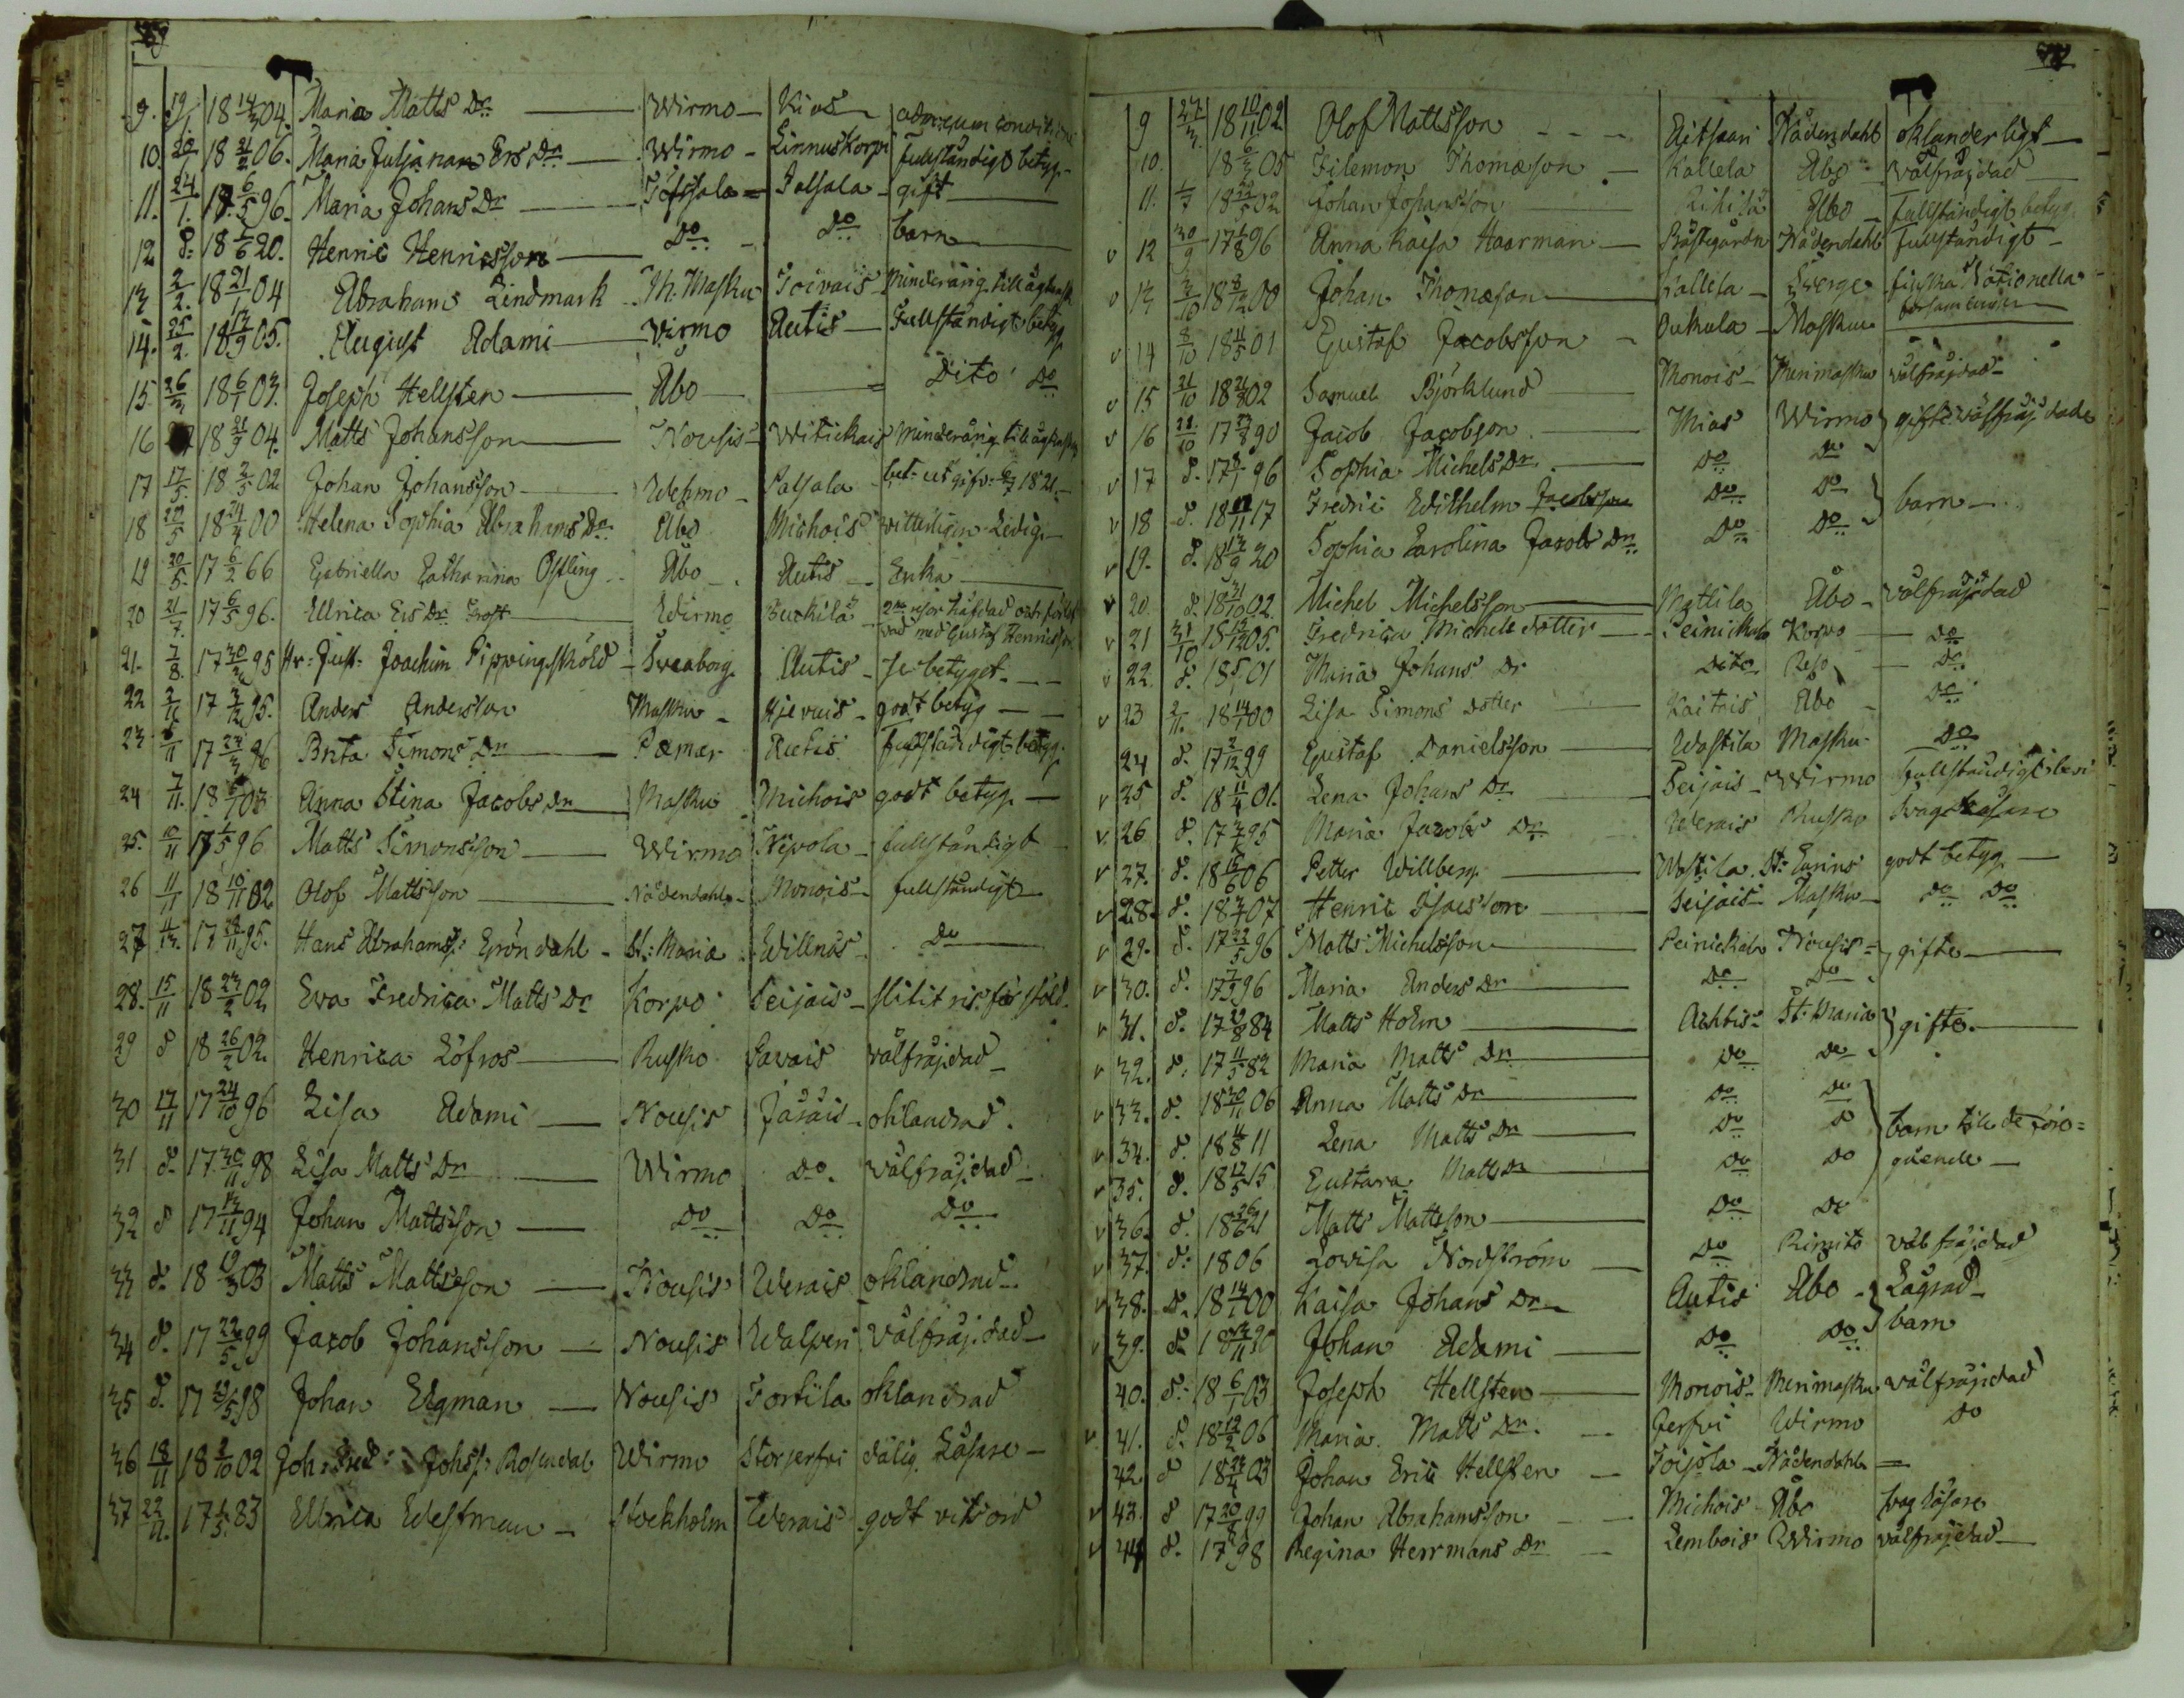 9. 19/1 18 14/3 04. Maria Matts Dr Wirmo Kios
10. 20/1 18 21/2 06. Maria Juljana Ers Dr Wirmo Linnuskorpi fullständigt betyg
11. 24/1. 17 6/5 96. Maria Johans Dr Töfsala Salsala gift
12 d: 18 1/6 20. Henric Henricsson Do Do barn
13 2/2. 18 21/1 04 Abraham Lindmark M. Masku Toivais Minderårig
14. 25/2. 18 13/9 05. August Adami Wirmo Autis Fullständigt betyg
15 26/3 18 6/1 03. Joseph Hellsten Åbo Dito Do
16 18 21/9 04. Matts Johansson Nousis Witickais Minderårig
17 17/5. 18 2/5 02 Johan Johansson Wehmo Salsala bet. utgifv: 1821.
18 18 24/4 00 Helena Sophia Abrahams Dr Åbo Michois Ledig
19 30/5. 17 6/2 66 Gabriella Catharina Östling Åbo Autis Enka
20 21/7. 17 6/5 96. Ulrica Ers Dr Frost Wirmo med Gustaf Hennisson
21. 7/8. 17 30/3 95 Hr: Just: Joachim Pippingsköld Sveaborg Autis Se betyget
22 2/11 17 3/12 95. Anders Andersson Masku Hjervais godt betyg
23 5/11 17 24/3 96 Brita Simons Dr Pemar Autis fullständigt betyg.
24 7/11. 18 03 Anna Stina Jacobs Dr Masku Michois godt betyg
25. 10/11 17 1/5 96 Matts Simonsson Wirmo Nipola fullständigt
26 11/11 18 10/11 02 Olof Mattsson Nådendahl Monois fullständigt
27 17 95. Hans Abrahamss: Gröndahl St: Maria Willnäs Do
28. 15/11 18 23/2 02 Eva Fredrica Matts Dr Korpo Seijais slitit ris för stöld.
29 d 18 26/2 02. Henrica Löfros Rusko Savais välfräjdad
30 17/11 17 24/10 96 Lisa Adami Nousis Järäis oklandrad.
31 d. 17 30/11 98 Lisa Matts Dr Wirmo Do. välfräjdad
32 d 17 13/11 94 Johan Mattsson Do Do Do
33 d. 18 19/3 03 Matts Mattsson Nousis Werais oklandrad
34 d. 17 22/5 99 Jacob Johansson Nousis Walpen välfräjdad
35 d. 17 98 Johan Ekman Nousis Tortila oklandrad
36 18/11 18 2/10 02 Joh: Fred: Johss: Rosendal Wirmo Storjerfvi dålig Läsare
37 22/11. 17 1/5. 83 Ulrica Westman Stockholm Werais godt vitsord
9 27/3. 18 10/11 02 Olof Mattsson Aitsaari Nådendahl oklanderligt
10. 18 6/3 05 Filemon Thomæson Kallela Åbo välfräjdad
11. 1/7 18 02 Johan Johansson Rihisä Åbo fullständigt betyg.
v 12 30/9 17 1/8 96 Anna Kaisa Haarman Prästgården Nådendahl fullständigt
v 13 3/10 18 00 Johan Thomæson Kallela Sverge finska Nationella församlingen
v 14 8/10 18 11/5 01 Gustaf Jacobsson Oukula Masku
v 15 21/10 18 21/8 02 Samuel Björklund Monois Merimasku välfräjdad
v 16 22/10 17 23/8 90 Jacob Jacobson Mias Wirmo gifte välfräjdade
v 17 d. 17 96 Sophia Michels Dr. Do Do
v 18 d. 18 11 17 Fredric Wilhelm Jacobsson Do Do barn
v 19. d. 18 13/9 20 Sophia Carolina Jacobs Dr Do Do
v 20. d. 18 21/10 02. Michel Michelsson Mattila Åbo välfräjdad
v 21 31/10 18 12/12 05. Fredrica Michels dotter Peinickala Korpo Do
v 22. d. 18 5/1 01 Maria Johans Dr Dito Reso Do
v 23 2/11. 18 14/1 00 Lisa Simons dotter Kaitois Åbo Do
24 d. 17 2/12 99 Gustaf Danielsson Wastila Masku Do
v 25 d. 18 11/4 01. Lena Johans Dr Seijais Wirmo fullständigt
v 26 d. 17 95 Maria Jacobs Dr Werais Rusko svag Läsare
v 27. d. 18 15/6 06 Petter Willberg Wastila St: Carins godt betyg.
v 28. d. 18 07 Henric Isacsson Seijais Masku Do Do
v 29. d. 17 22/5 96 Matts Michelsson Peinickala Nousis gifte
v 30. d. 17 96 Maria Anders Dr Do Do
v 31. d. 17 29/8 84 Matts Holm Achtis St: Maria gifte.
v 32. d. 17 11/5 82 Maria Matts Dr Do Do
v 33. d. 18 30/11 06 Anna Matts Dr Do Do
v 34. d. 18 11/8 11 Lena Matts Dr Do d barn till de före=
v 35. d. 18 12/5 15 Gustava Matts Dr Do Do gående
v 36. d. 18 26/6 21 Matts Mattsson Do Do
v 37. d: 1806 Lovisa Nordström Do Rimito välfräjdad
v 38. D. 18 14/1 00 Kaisa Johans Dr Autis Åbo Lägrad
v 39. d. Johan Adami Do Do barn
40. d. 18 6/1 03 Joseph Hellsten Monois Merimasku välfräjdad
v 41. d. 18 12/2 06 Maria Matts Dr. Jerfvi Wirmo Do
42. d 18 24/4 03 Johan Eric Hellsten Toijola Nådendahl
v 43. d 17 20/8 99 Johan Abrahamsson Michois Åbo svag Läsare
v 44 d. 17 98 Regina Herrmans Dr Lembois Wirmo välfräjdad